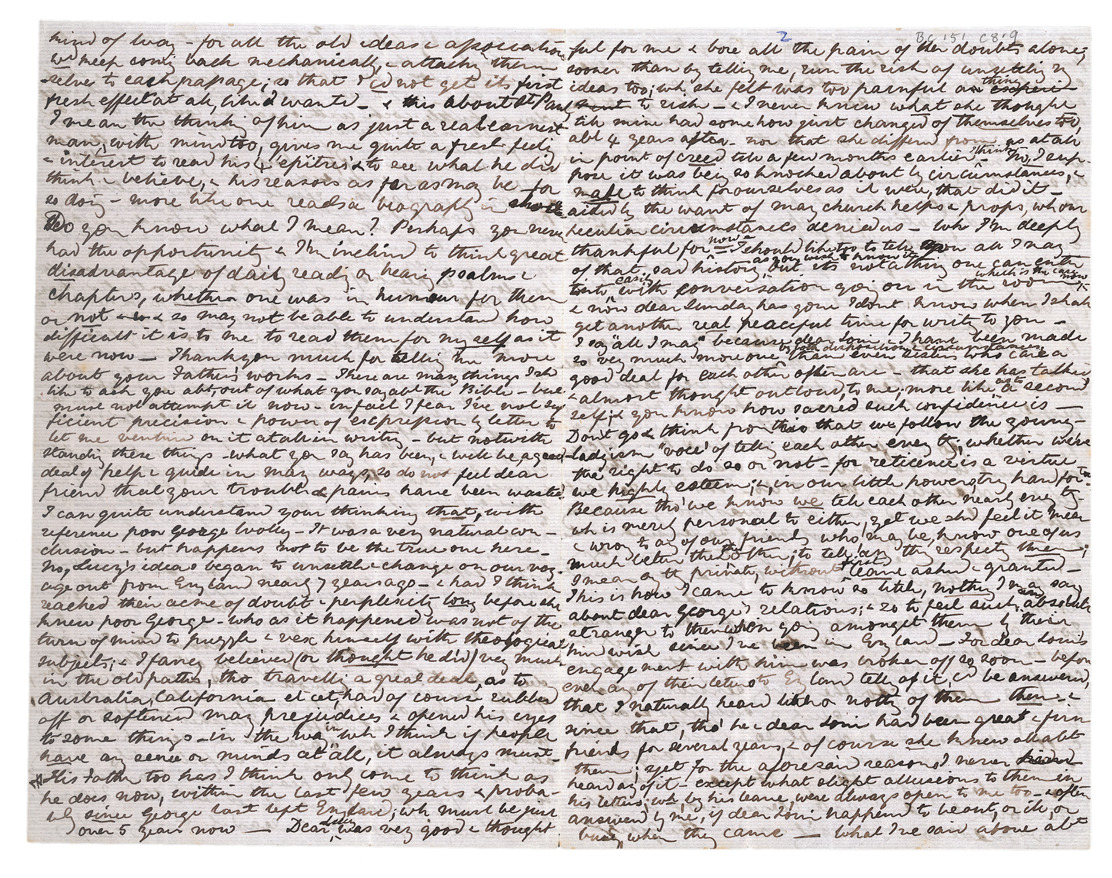 kind of way - for all the old ideas & association
will keep comg back mechanically & attachg them
selves to each passage; so that I cd not get its first
fresh effect at all, tho' I wanted - & this about St Paul
I mean the thinkg of him as just a real earnest
man, with mind too, gives me quite a fresh feelg
& interest to read his epistles & to see what he did
think & believe, & his reasons as far as may be for
so doing - more like one reads a biography in
Do you know what I mean? Perhaps you never
had the opportunity & I'm inclined to think great
disadvantage of daily readg or hearg psalms &
chapters, whether one was in humour for them
or not & so may not be able to understand how
difficult it is to me to read them for myself as it
were now - Thank you much for tellg me more
about your Father's works - There are many things I shd
like to ask you abt, out of what you say abt the Bible - but
must not attempt it now - in fact I fear I've not suf
ficient precision & power of expression by letter to
let me venture on it at all in writg - but notwith
standg these things - what you say has been, & will be a great
deal of help & guide in many ways, so do not feel dear
friend that your trouble & pains have been wasted
I can quite understand your thinking that, with
reference poor George Wolley - It was a very natural con-
clusion - but happens not to be the true one here -
No, Lucy's ideas began to unsettle & change on our voy-
age out from England nearly 7 years ago - & had I think
reached their acme of doubt & perplexity long before she
knew poor George - who as it happened was not of the
turn of mind to puzzle & vex himself with theological
subjects; & I fancy believed (or thought he did) very much
in the old paths, tho' travellg a great deal, as to
Australia, California et cet, had of course rubbed
off or softened many prejudices & opened his eyes
to some things - in the way in wh I think if people
have any sense or minds at all, it always must -
His Father too has I think only come to think as
he does now, within the last few years & proba-
bly since George last left England; wh must be just
over 5 years now - Dear Lucy was very good & thought
2
BC 151 C8.9
ful for me & bore all the pain of her doubts alone,
sooner than by telling me, run the risk of unsettlg my
ideas too; wh she felt was too painful an
thing to risk - & I never knew what she thought
till mine had somehow just changed of themselves too,
abt 4 years after - nor that she differed from us at all
in point of creed till a few months earlier - No, I sup
pose it was being so knocked about by circumstances, &
made to think for ourselves as it were, that did it -
aided by the want of many church helps & props, whom
peculiar circumstances denied us - Wh I'm deeply
thankful for now - I should like too to tell you all I may
as you wish to know it
of that sad history, but it's not a thing one can
with conversation goig on in the room
which is the case now
& now dear Sunday has gone I dont know when I shall
get another real peaceful time for writg to you -
I say 'all I may' because dear Louie & I have been made
so very much more one than even sisters who care a
good deal for each other often are - that she has talked
& almost thought out loud, to me, more like to a second
self; & you know how sacred such confidence is -
Dont go & think from this that we follow the young-
ladyism 'vice' of tellg each other every tg, whether weve
the right to do so or not - for reticence is a virtue
we highly esteem; & in our little power try hard for -
Because tho' we know we tell each other nearly every tg
wh is merely personal to either, yet we shd feel it mean
& wrong to any of our friends who may be, know one of us
much better than the other, to tell any tg the respectg them;
I mean any tg private, without first leave asked & granted -
This is how I came to know so little, nothg I may say
about dear George's relations; & so to feel such an absolute
stranger to them when goig amongst them by their
kind wish since I've been in England - For dear Louie's
engagement with him was broken off so soon - before
even any of their letters to England tellg of it, cd be answered,
that I naturally heard little or nothg of them then - &
since that, tho' he & dear Louie had been great & firm
friends for several years, & of course she knew all abt
them; yet for the aforesaid reason I never
heard any of it - except what slight allusions to them in
his letters, wh by his leave, were always open to me too & often
answered by me, if dear Louie happened to be out, or ill, or
busy, when they came - What I've said above abt